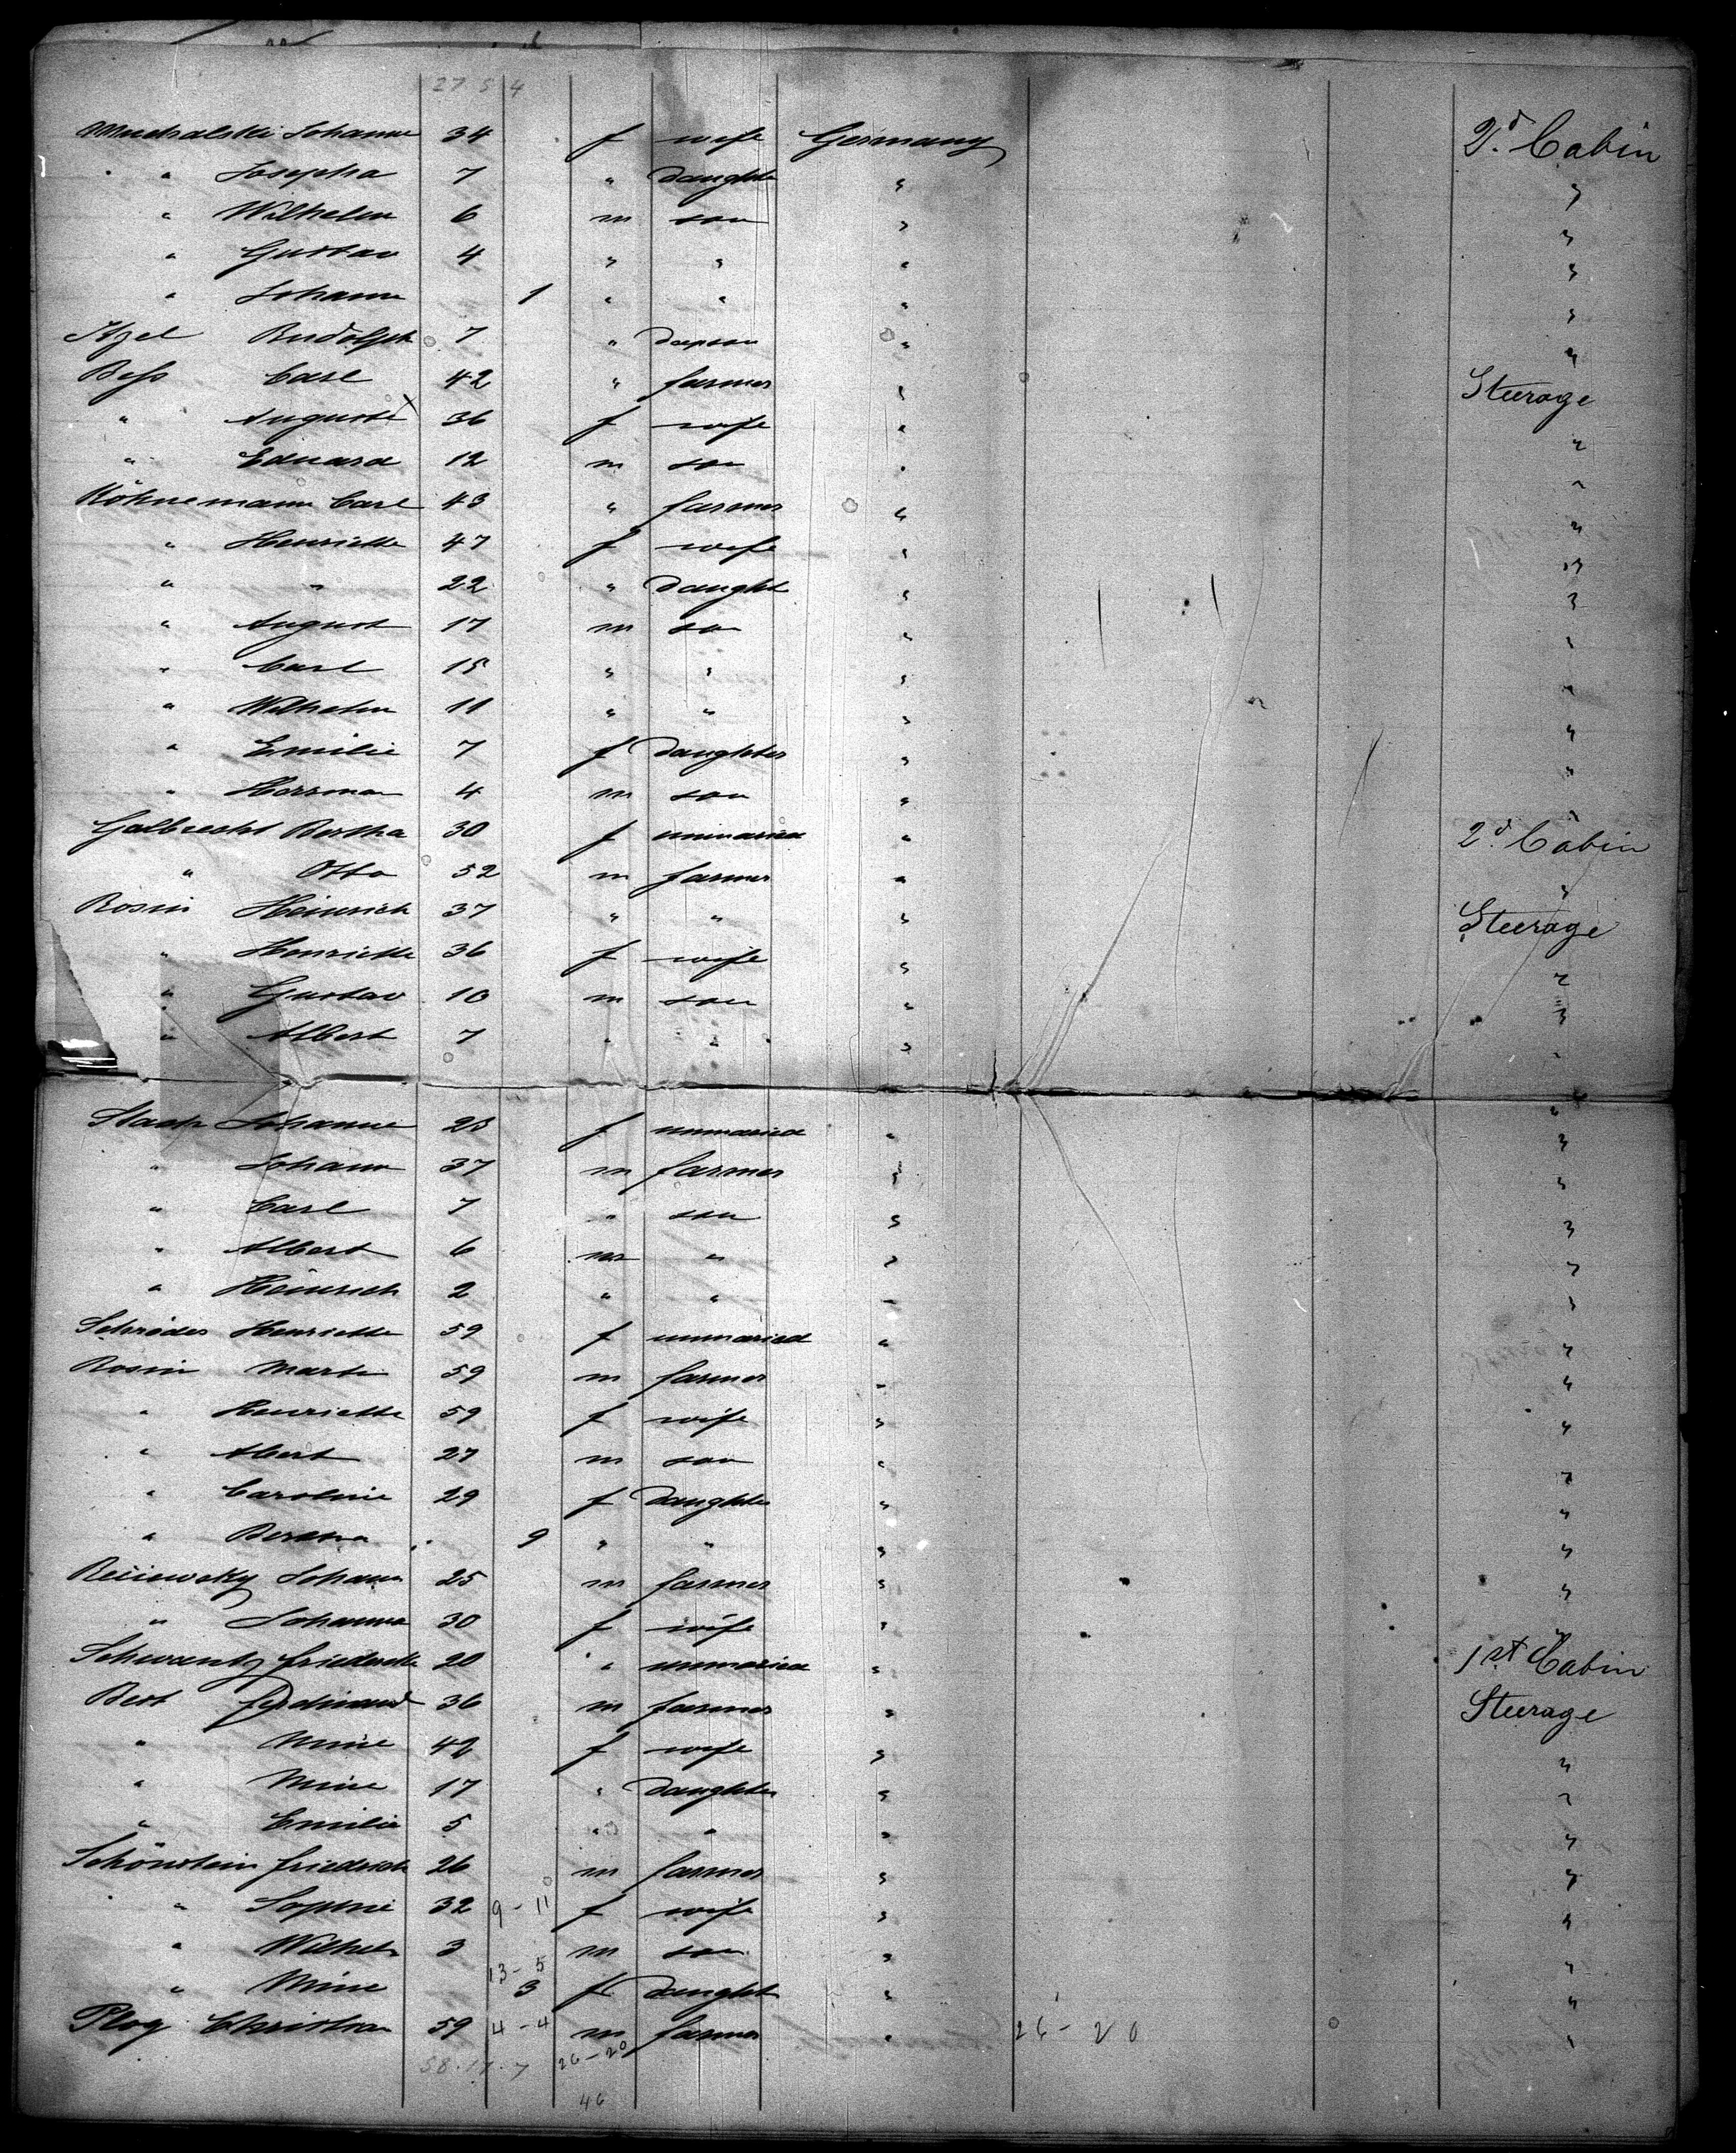 27 5 4
Muchalski Johanne 34 f wife Germany 2d. Cabin
" Josepha 7 " daughte " "
" Wilhelm 6 m son " "
" Gustav 4 " " " "
" Johann 1 " " " "
Rudolph 7 " " "
Bess Carl 42 " farmer " Steerage
" Auguste x 36 f wife " "
" Eduard 12 m son " "
Köhnemann Carl 43 " farmer " "
" Henriette 47 f wife " "
" " 22 " daught " "
" August 17 m son " "
" Carl 15 " " " "
" Wilhelm 11 " " " "
" Emilie 7 f daughter " "
" Herrman 4 m son " "
Galbrecht Bertha 30 f unmaried " 2d. Cabin
" Otto 52 m farmer " "
Rosin Heinrich 37 " " " Steerage
" Henriette 36 f wife " "
" Gustav 10 m son " "
" Albert 7 " " " "
Staats Johanne 25 f unmaried " "
" Johann 37 m farmer " "
" Carl 7 " son " "
" Albert 6 m " " "
" Heinrich 2 " " " "
Schröder Henriette 59 f unmaried " "
Rosin Martin 59 m farmer " "
" Henriette 59 f wife " "
" Albert 27 m son " "
" Caroline 29 f daughter " "
" Bertha 9 " " " "
Johann 25 m farmer " "
" Johanna 30 f wife " "
Schwantz Friederike 20 " unmaried " 1st Cabin
Best Ferdinand 36 m farmer " Steerage
" Mine 42 f wife " "
" Mine 17 " daughter " "
" Emilie 5 " " " "
Schönstein Friedrich 26 m farmer " "
" Sophie 32 9-11 f wife " "
" Wilhelm 3 m son " "
13-5
" Mine 3 f daught " "
Plog Christian 59 4-4 m farmer " 26-20 "
58.17.7 26-20
46